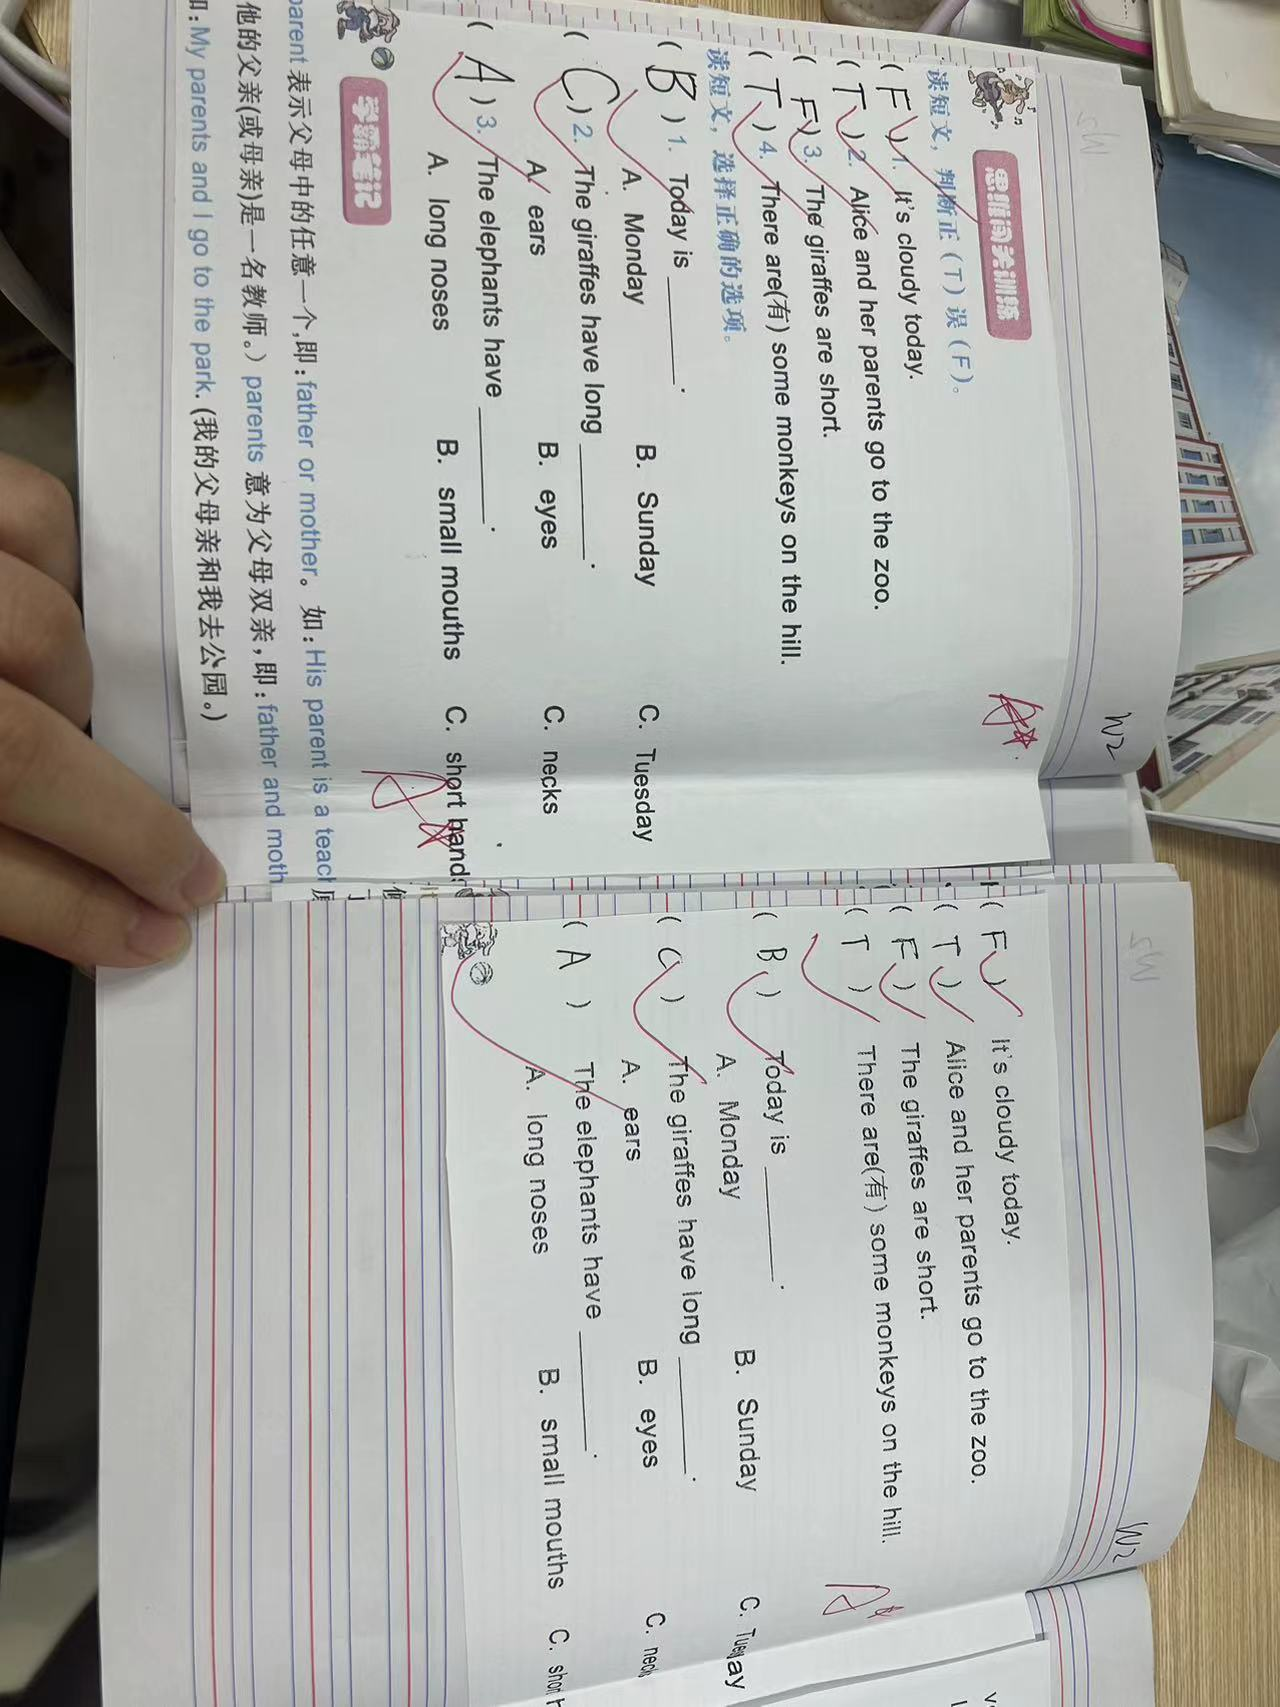 W2
思维闯关训练
读短文，判断正（T）误（F）。
( F ) 1. It's cloudy today.
( T ) 2. Alice and her parents go to the zoo.
( F ) 3. The giraffes are short.
( T ) 4. There are(有) some monkeys on the hill.
读短文，选择正确的选项。
( B ) 1. Today is ______.
A. Monday B. Sunday C. Tuesday
( C ) 2. The giraffes have long ______.
A. ears B. eyes C. necks
( A ) 3. The elephants have ______.
A. long noses B. small mouths C. short hand
学霸笔记
parent 表示父母中的任意一个,即:father or mother。如:His parent is a teac
他的父亲(或母亲)是一名教师。）parents 意为父母双亲,即:father and moth
如:My parents and I go to the park. (我的父母亲和我去公园。)
W2
( F ) It's cloudy today.
( T ) Alice and her parents go to the zoo.
( F ) The giraffes are short.
( T ) There are(有) some monkeys on the hill.
( B ) Today is ______.
A. Monday B. Sunday C. Tuesday
( C ) The giraffes have long ______.
A. ears B. eyes C. neck
( A ) The elephants have ______.
A. long noses B. small mouths C. short h